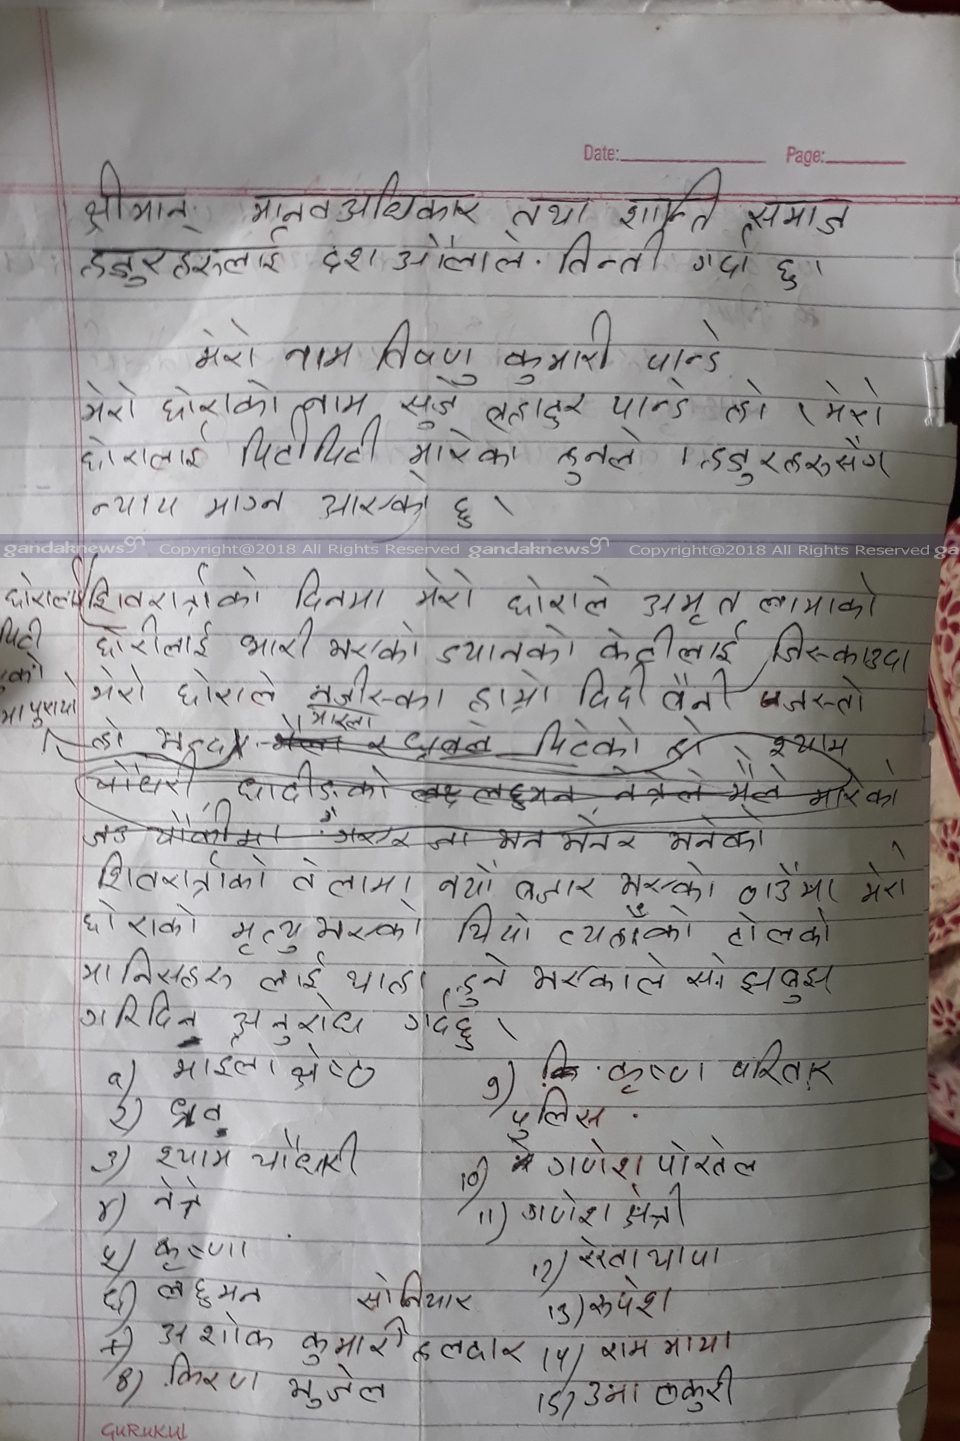 Date:
Page:
श्रीमान् मानव अधिकार तथा शान्ति समाज
हजुरहरुलाई दश औलाले विन्ती गर्दा छु।
मेरो नाम विष्णु कुमारी पान्डे
मेरो छोराको नाम सुर्जे बहादुर पान्डे हो । मेरो
छोरालाई पिटीपिटी मारेको हुनाले । हजुरहरुसँग
न्याय माग्न आएको छु ।
gandaknews Copyright@2018 All Rights Reserved gandaknews Copyright@2018 All Rights Reserved
छोरालाई शिवरात्रीको दिनमा मेरो छोराले अमृत लामाको
पिटी छोरीलाई भारी भएको ड्यानको केटीलाई जिस्काउदा
मेरो छोराले नजीस्का हाम्रो दिदी बैनी जस्तो
मा पुरायो
माइला
हो भन्दा र ध्रुवले पिटेको हो श्याम
चौधरी धादीङको लछुमन नेत्रेले मैले मारेको
चौकीमा गएर भनेको
शिवरात्रीको लामा नयाँ बजार भएको ठाउँमा मेरो
छोराको मृत्यु भएको थियो त्यहाँको टोलको
मानिसहरु लाई थाहा हुने भएकाले सोझबुझ
गरिदिन अनुरोध गर्दछु ।
१) माईला श्रेष्ठ
२) ध्रुव
३) श्याम चौधरी
४) नेत्रे
५) कृष्णा
६) लछुमन सोनियार
७) अशोक कुमारी हलदार
8) किरण भुजेल
9) कृष्ण परियार
पुलिस
10) गणेश पोखेल
11) गणेश क्षेत्री
12) रेखा थापा
13) रुपेश
14) राम माया
15) उमा लकुरी
GURUKUL